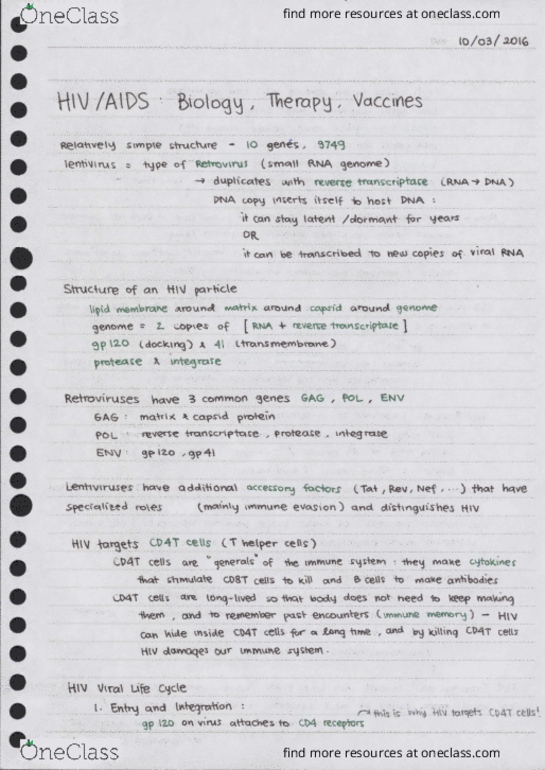 OneClass
find more resources at oneclass.com
10/03/2016
HIV/AIDS : Biology, Therapy, Vaccines
Relatively simple structure - 10 genes, 9749
lentivirus = type of Retrovirus (small RNA genome)
→ duplicates with reverse transcriptase (RNA → DNA)
DNA copy inserts itself to host DNA :
it can stay latent /dormant for years
OR
it can be transcribed to new copies of viral RNA
Structure of an HIV particle
lipid membrane around matrix around capsid around genome
genome = 2 copies of [RNA + reverse transcriptase]
gp120 (docking) & 41 (transmembrane)
protease & integrase
Retroviruses have 3 common genes GAG, POL, ENV
GAG : matrix & capsid protein
POL : reverse transcriptase, protease, integrase
ENV : gp120, gp41
Lentiviruses have additional accessory factors (Tat, Rev, Nef, ...) that have
specialized roles (mainly immune evasion) and distinguishes HIV
HIV targets CD4T cells (T helper cells)
CD4T cells are "generals" of the immune system : they make cytokines
that stimulate CD8T cells to kill and B cells to make antibodies
CD4T cells are long-lived so that body does not need to keep making
them, and to remember past encounters (immune memory) - HIV
can hide inside CD4T cells for a long time, and by killing CD4T cells
HIV damages our immune system.
HIV Viral Life Cycle
1. Entry and Integration :
→ this is why HIV targets CD4T cells!
gp 120 on virus attaches to CD4 receptors
OneClass
find more resources at oneclass.com